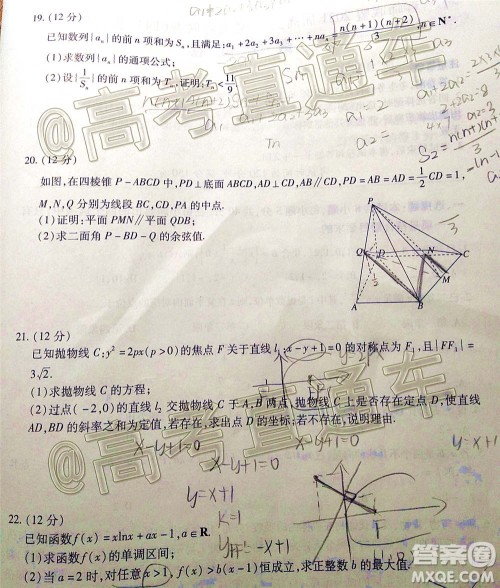 19. (12 分)
已知数列{aₙ}的前 n 项和为 Sₙ,且满足:a₁+2a₂+3a₃+⋯+naₙ=n(n+1)(n+2)/3,n∈N*.
(1)求数列{aₙ}的通项公式;
(2)设{1/Sₙ}的前 n 项和为 Tₙ,证明:Tₙ<11/9.
20. (12 分)
如图,在四棱锥 P-ABCD 中,PD⊥底面 ABCD,AD⊥CD,AB∥CD,PD=AB=AD=1/2CD=1,
M,N,Q 分别为线段 BC,CD,PA 的中点.
(1)证明:平面 PMN∥平面 QDB;
(2)求二面角 P-BD-Q 的余弦值.
P
Q D N C
M
A B
21. (12 分)
已知抛物线 C:y²=2px(p>0)的焦点 F 关于直线 l₁:x-y+1=0 的对称点为 F₁,且|FF₁|=
3√2.
(1)求抛物线 C 的方程;
(2)过点(-2,0)的直线 l₂ 交抛物线 C 于 A,B 两点,抛物线 C 上是否存在定点 D,使直线
AD,BD 的斜率之和为定值,若存在,求出点 D 的坐标;若不存在,说明理由.
x-y+1=0
x-y+1=0
y=x+1
k=1
-x+1
y=x+1
22. (12 分)
已知函数 f(x)=xlnx+ax-1,a∈R.
(1)求函数 f(x)的单调区间;
(2)当 a=2 时,对任意 x>1,f(x)>b(x-1)恒成立,求正整数 b 的最大值.
@高考直通车
@高考直通车
答案圈